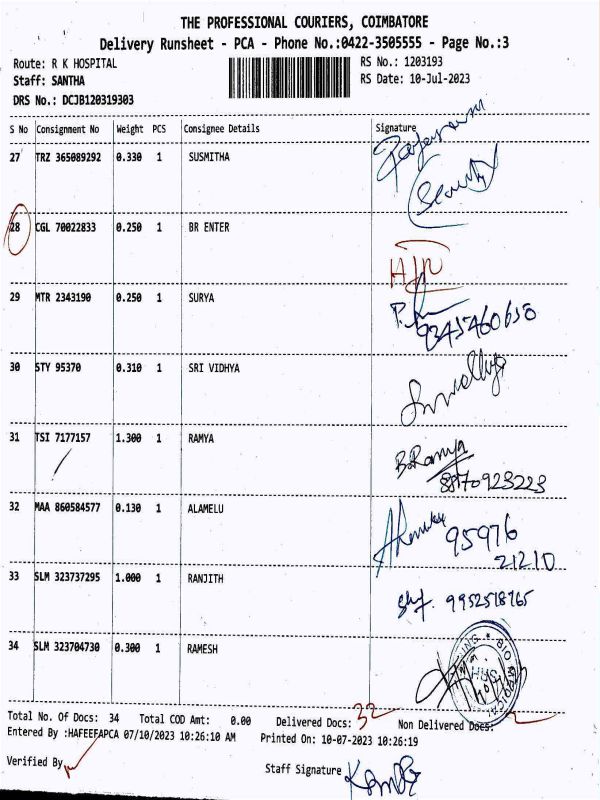 THE PROFESSIONAL COURIERS, COIMBATORE
Delivery Runsheet - PCA - Phone No.:0422-3505555 - Page No.:3
Route: R K HOSPITAL RS No.: 1203193
Staff: SANTHA RS Date: 10-Jul-2023
DRS No.: DCJB120319303
S No Consignment No Weight PCS Consignee Details Signature
27 TRZ 365089292 0.330 1 SUSMITHA
28 CGL 70022833 0.250 1 BR ENTER
29 MTR 2343190 0.250 1 SURYA
9345460650
30 STY 95370 0.310 1 SRI VIDHYA
31 TSI 7177157 1.300 1 RAMYA B.Ramya
8870923223
32 MAA 860584577 0.130 1 ALAMELU 95976
21210
33 SLM 323737295 1.000 1 RANJITH 9952518765
34 SLM 323704730 0.300 1 RAMESH
Total No. Of Docs: 34 Total COD Amt: 0.00 Delivered Docs: 32 Non Delivered Docs: 2
Entered By :HAFEEFAPCA 07/10/2023 10:26:10 AM Printed On: 10-07-2023 10:26:19
Verified By
Staff Signature